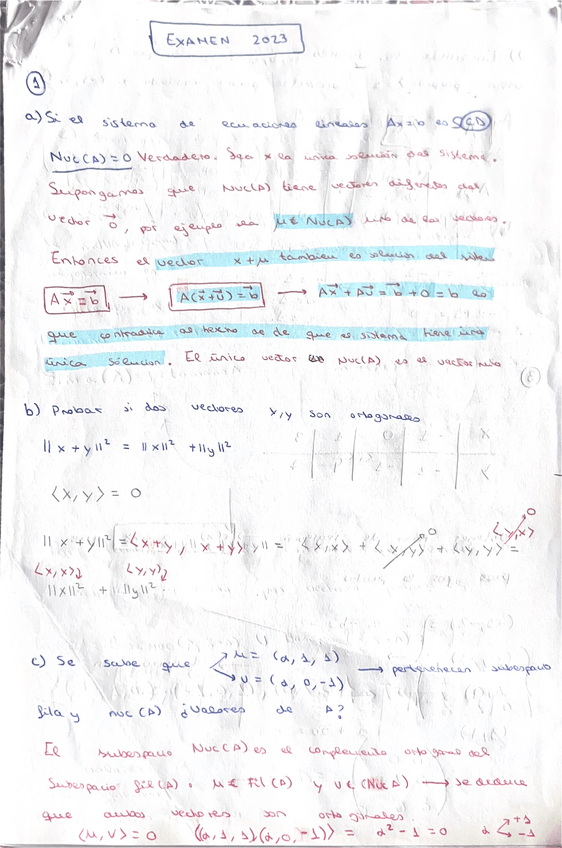 EXAMEN 2023
①
a) Si el sistema de ecuaciones lineales Ax=b es SCD
Nuc(A)=0 Verdadero. Sea x la única solución del sistema.
Supongamos que Nuc(A) tiene vectores diferetes del
vector 0⃗, por ejemplo sea μ∈Nuc(A) uno de los vectores.
Entonces el vector x+μ tambien es solucion del sistem
Ax⃗=b⃗ → A(x⃗+u⃗)=b⃗ → Ax⃗+Au⃗=b⃗+0=b lo
que contradice al hecho de de que el sistema tiene una
única solucion. El único vector Nuc(A) es el vector nulo
b) Probar si dos vectores x,y son ortogonales
||x+y||² = ||x||² + ||y||²
⟨x,y⟩ = 0
||x+y||² = ⟨x+y, x+y⟩ = ⟨x,x⟩ + ⟨x,y⟩ 0 + ⟨y,y⟩ = ⟨y,x⟩ 0
⟨x,x⟩ ⟨y,y⟩
||x||² + ||y||².
c) Se sabe que μ=(α,1,1)
v=(α,0,-1) → pertenecen subespacio
fila y nuc(A) ¿Valores de A?
El subespacio Nuc(A) es el complemento ortogonal del
Subespacio fil(A). μ∈Fil(A) y v∈(Nuc A) → se deduce
que ambos vectores son ortogonales.
⟨μ,v⟩=0 ⟨(α,1,1)(α,0,-1)⟩ = α²-1=0 α +1 -1